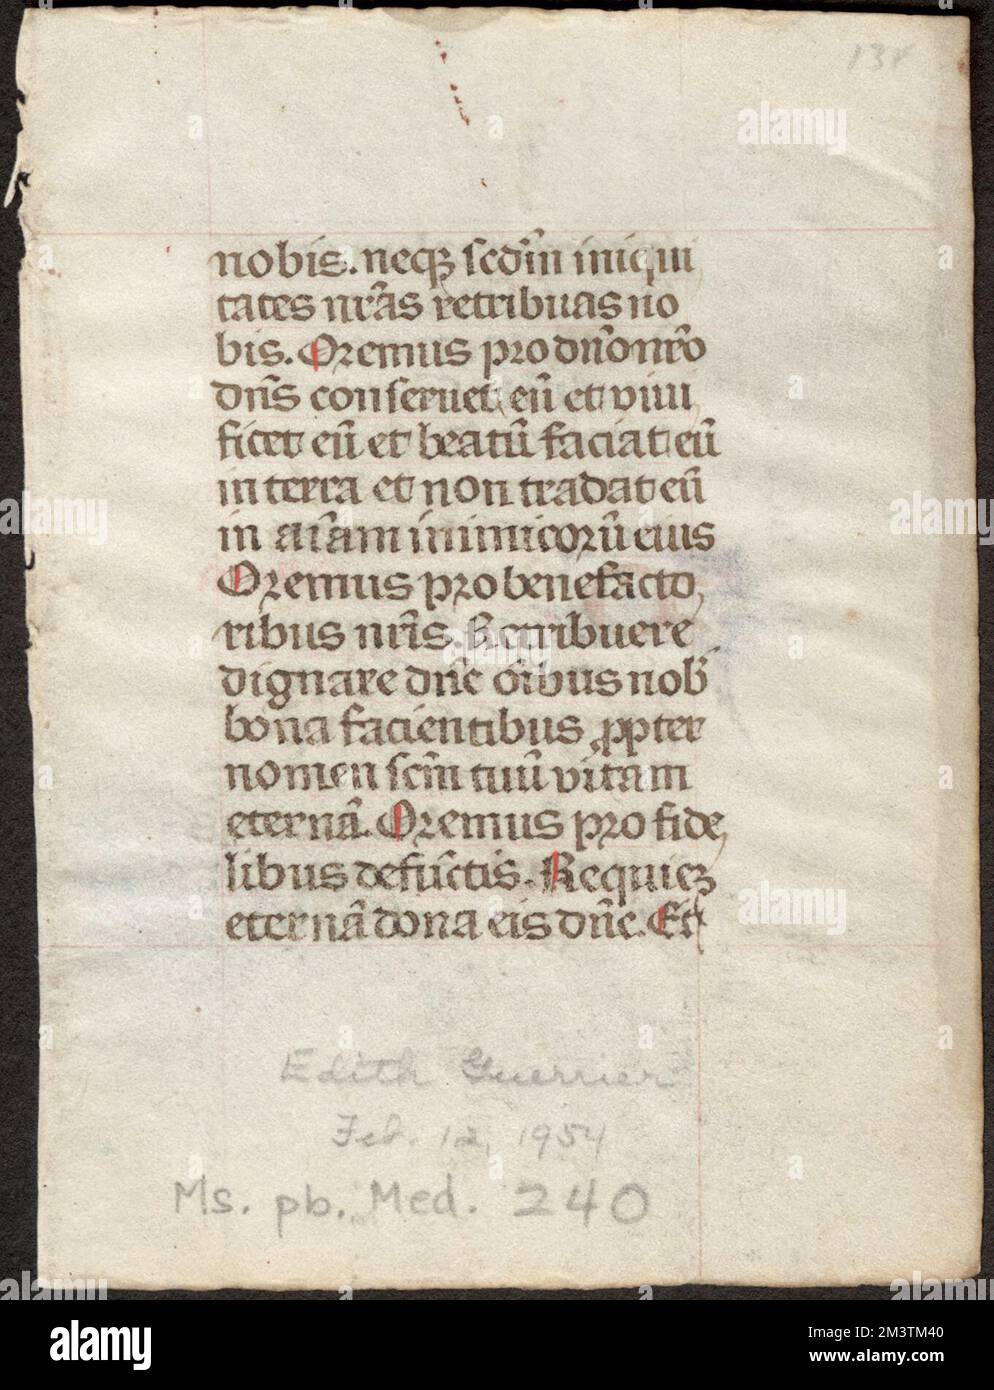 134
nobis. neqꝫ sedm̄ iniqui
tates nr̄as retribuas no
bis. Oremus pro dn̄o nr̄o
dn̄s conseruet eū et viui
ficet eū et beatū faciat eū
in terra et non tradat eū
in aı̄am inimicorū eius
Oremus pro benefacto
ribus nr̄is. Retribuere
dignare dn̄e oı̄bus nob̄
bona facientibus propter
nomen scm̄ tuū vitam
eternā. Oremus pro fide
libus defūctis. Requiēꝫ
eternā dona eis dn̄e. Et
Edith Guerrier
Feb. 12, 1954
Ms. pb. Med. 240
alamy
Image ID: 2M3TM40
www.alamy.com